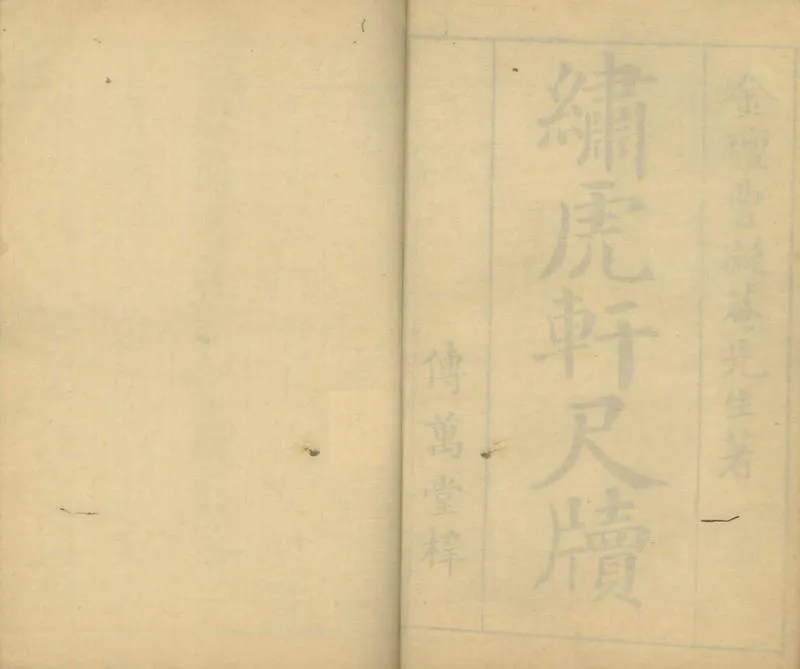 金壇曹荔菴先生著
繡虎軒尺牘
傳萬堂梓